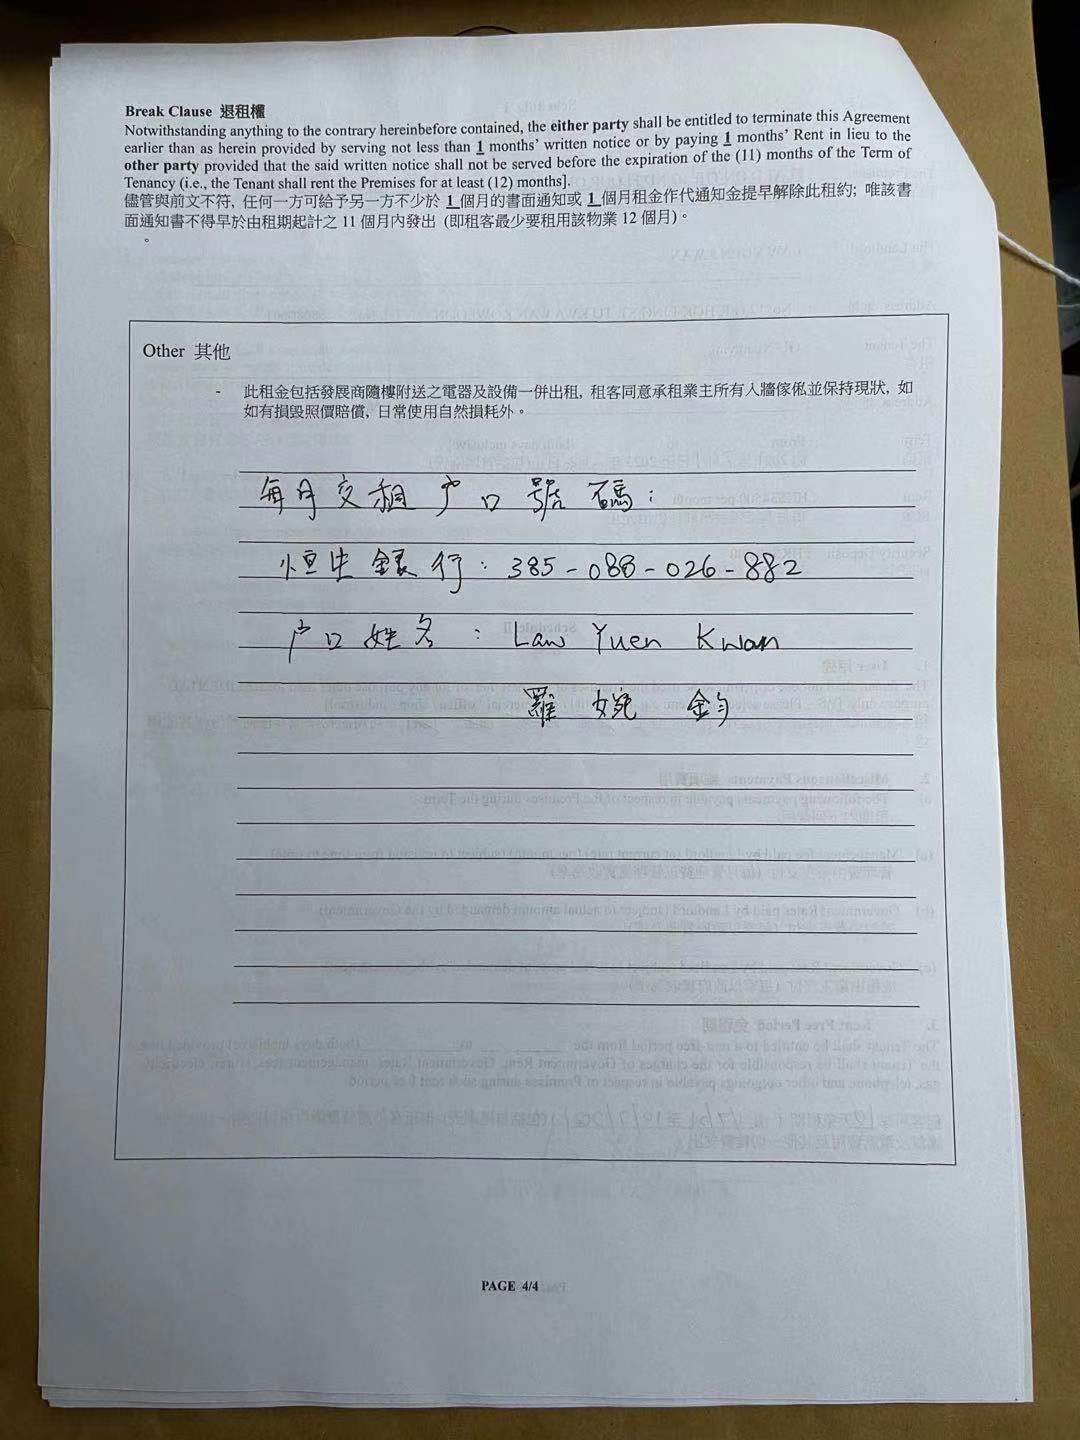 Break Clause 退租權
Notwithstanding anything to the contrary hereinbefore contained, the either party shall be entitled to terminate this Agreement
earlier than as herein provided by serving not less than 1 months' written notice or by paying 1 months' Rent in lieu to the
other party provided that the said written notice shall not be served before the expiration of the (11) months of the Term of
Tenancy (i.e., the Tenant shall rent the Premises for at least (12) months].
儘管與前文不符, 任何一方可給予另一方不少於 1 個月的書面通知或 1 個月租金作代通知金提早解除此租約; 唯該書
面通知書不得早於由租期起計之 11 個月內發出 (即租客最少要租用該物業 12 個月)。
。
Other 其他
- 此租金包括發展商隨樓附送之電器及設備一併出租, 租客同意承租業主所有入牆傢俬並保持現狀, 如
如有損毀照價賠償, 日常使用自然損耗外。
每月交租户口號碼:
恒生銀行: 385-088-026-882
户口姓名: Law Yuen Kwan
羅婉鈞
PAGE 4/4